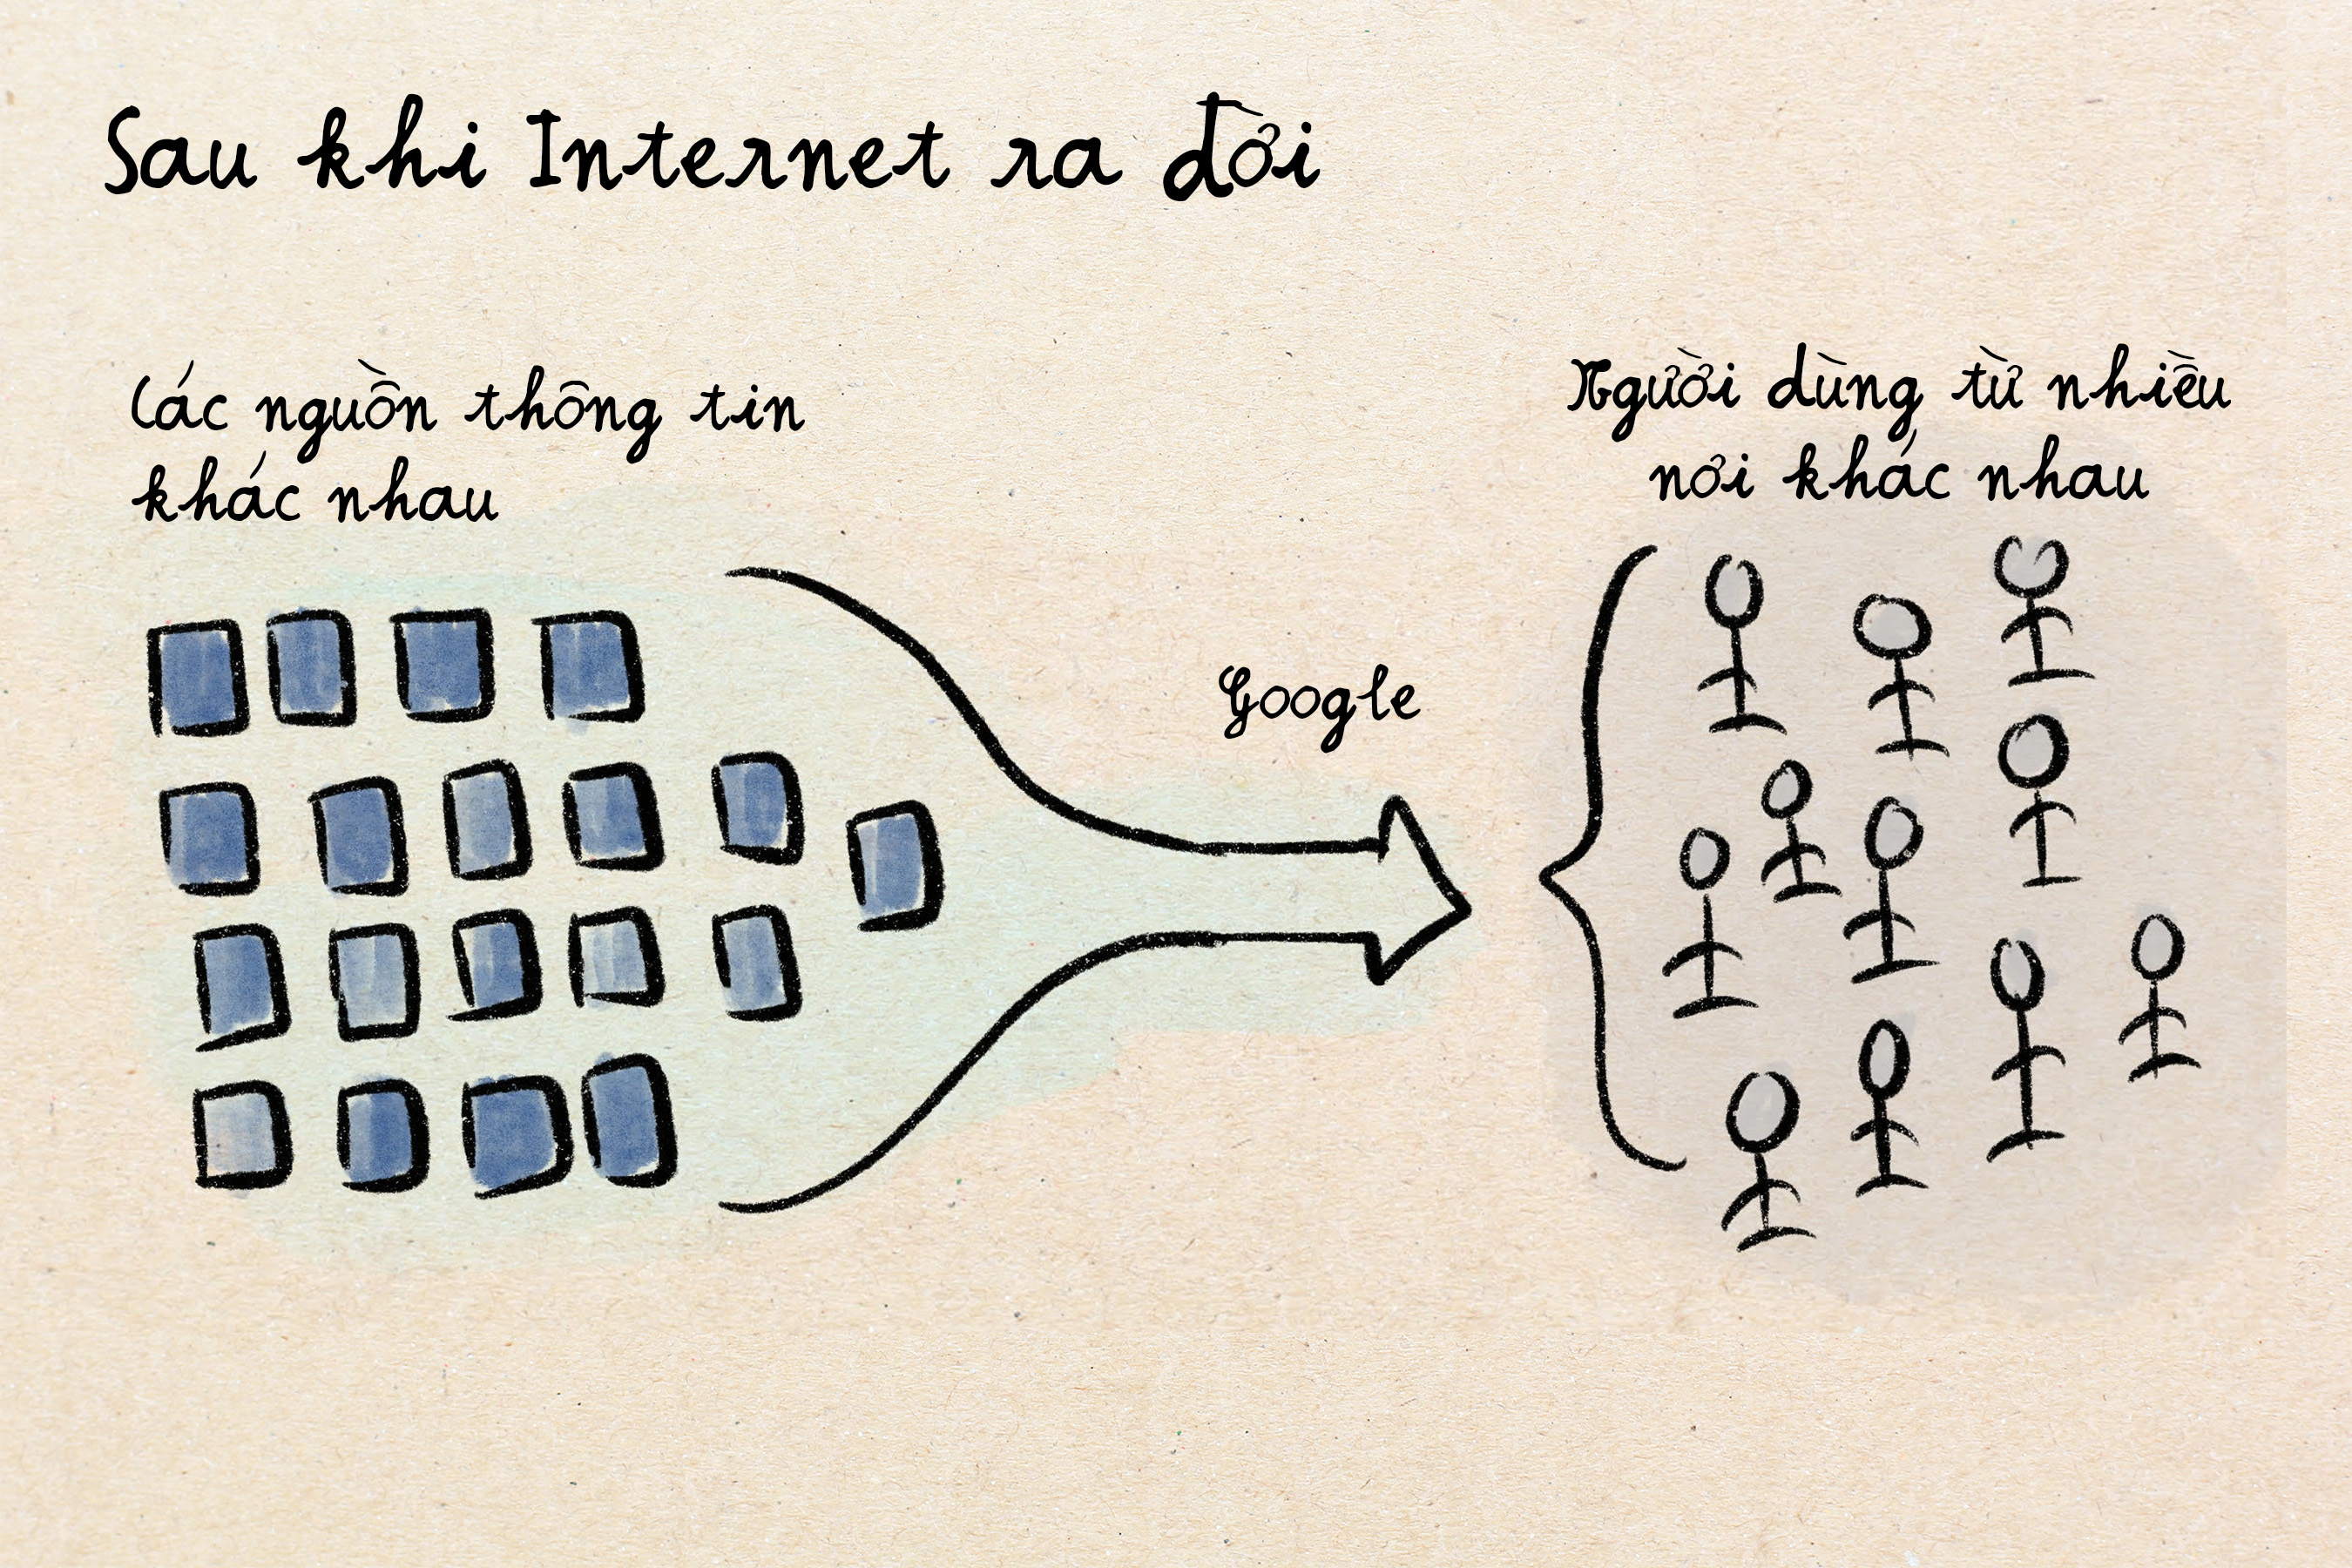 Sau khi Internet ra đời
Các nguồn thông tin
khác nhau
Người dùng từ nhiều
nơi khác nhau
Google